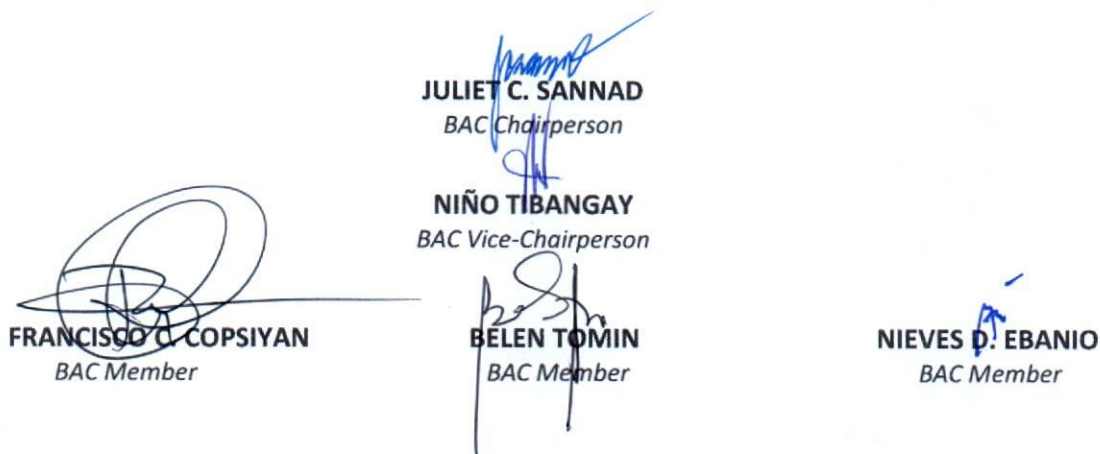 JULIET C. SANNAD
BAC Chairperson
NIÑO TIBANGAY
BAC Vice-Chairperson
FRANCISCO C. COPSIYAN
BAC Member
BELEN TOMIN
BAC Member
NIEVES D. EBANIO
BAC Member